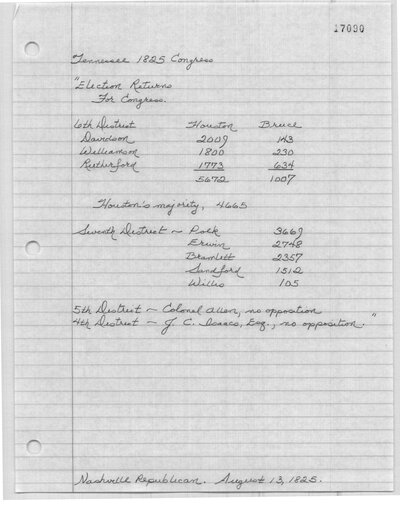 17090
Tennessee 1825 Congress
"Election Returns
For Congress.
6th District Houston Bruce
Davidson 2009 143
Williamson 1800 230
Rutherford 1773 634
5672 1007
Houston's majority, 4665
Seventh District ~ Polk 3669
Erwin 2748
Bramlett 2357
Sandford 1512
Willis 105
5th District ~ Colonel Allen, no opposition
4th District ~ J. C. Isaacs, Esq., no opposition."
Nashville Republican. August 13, 1825.